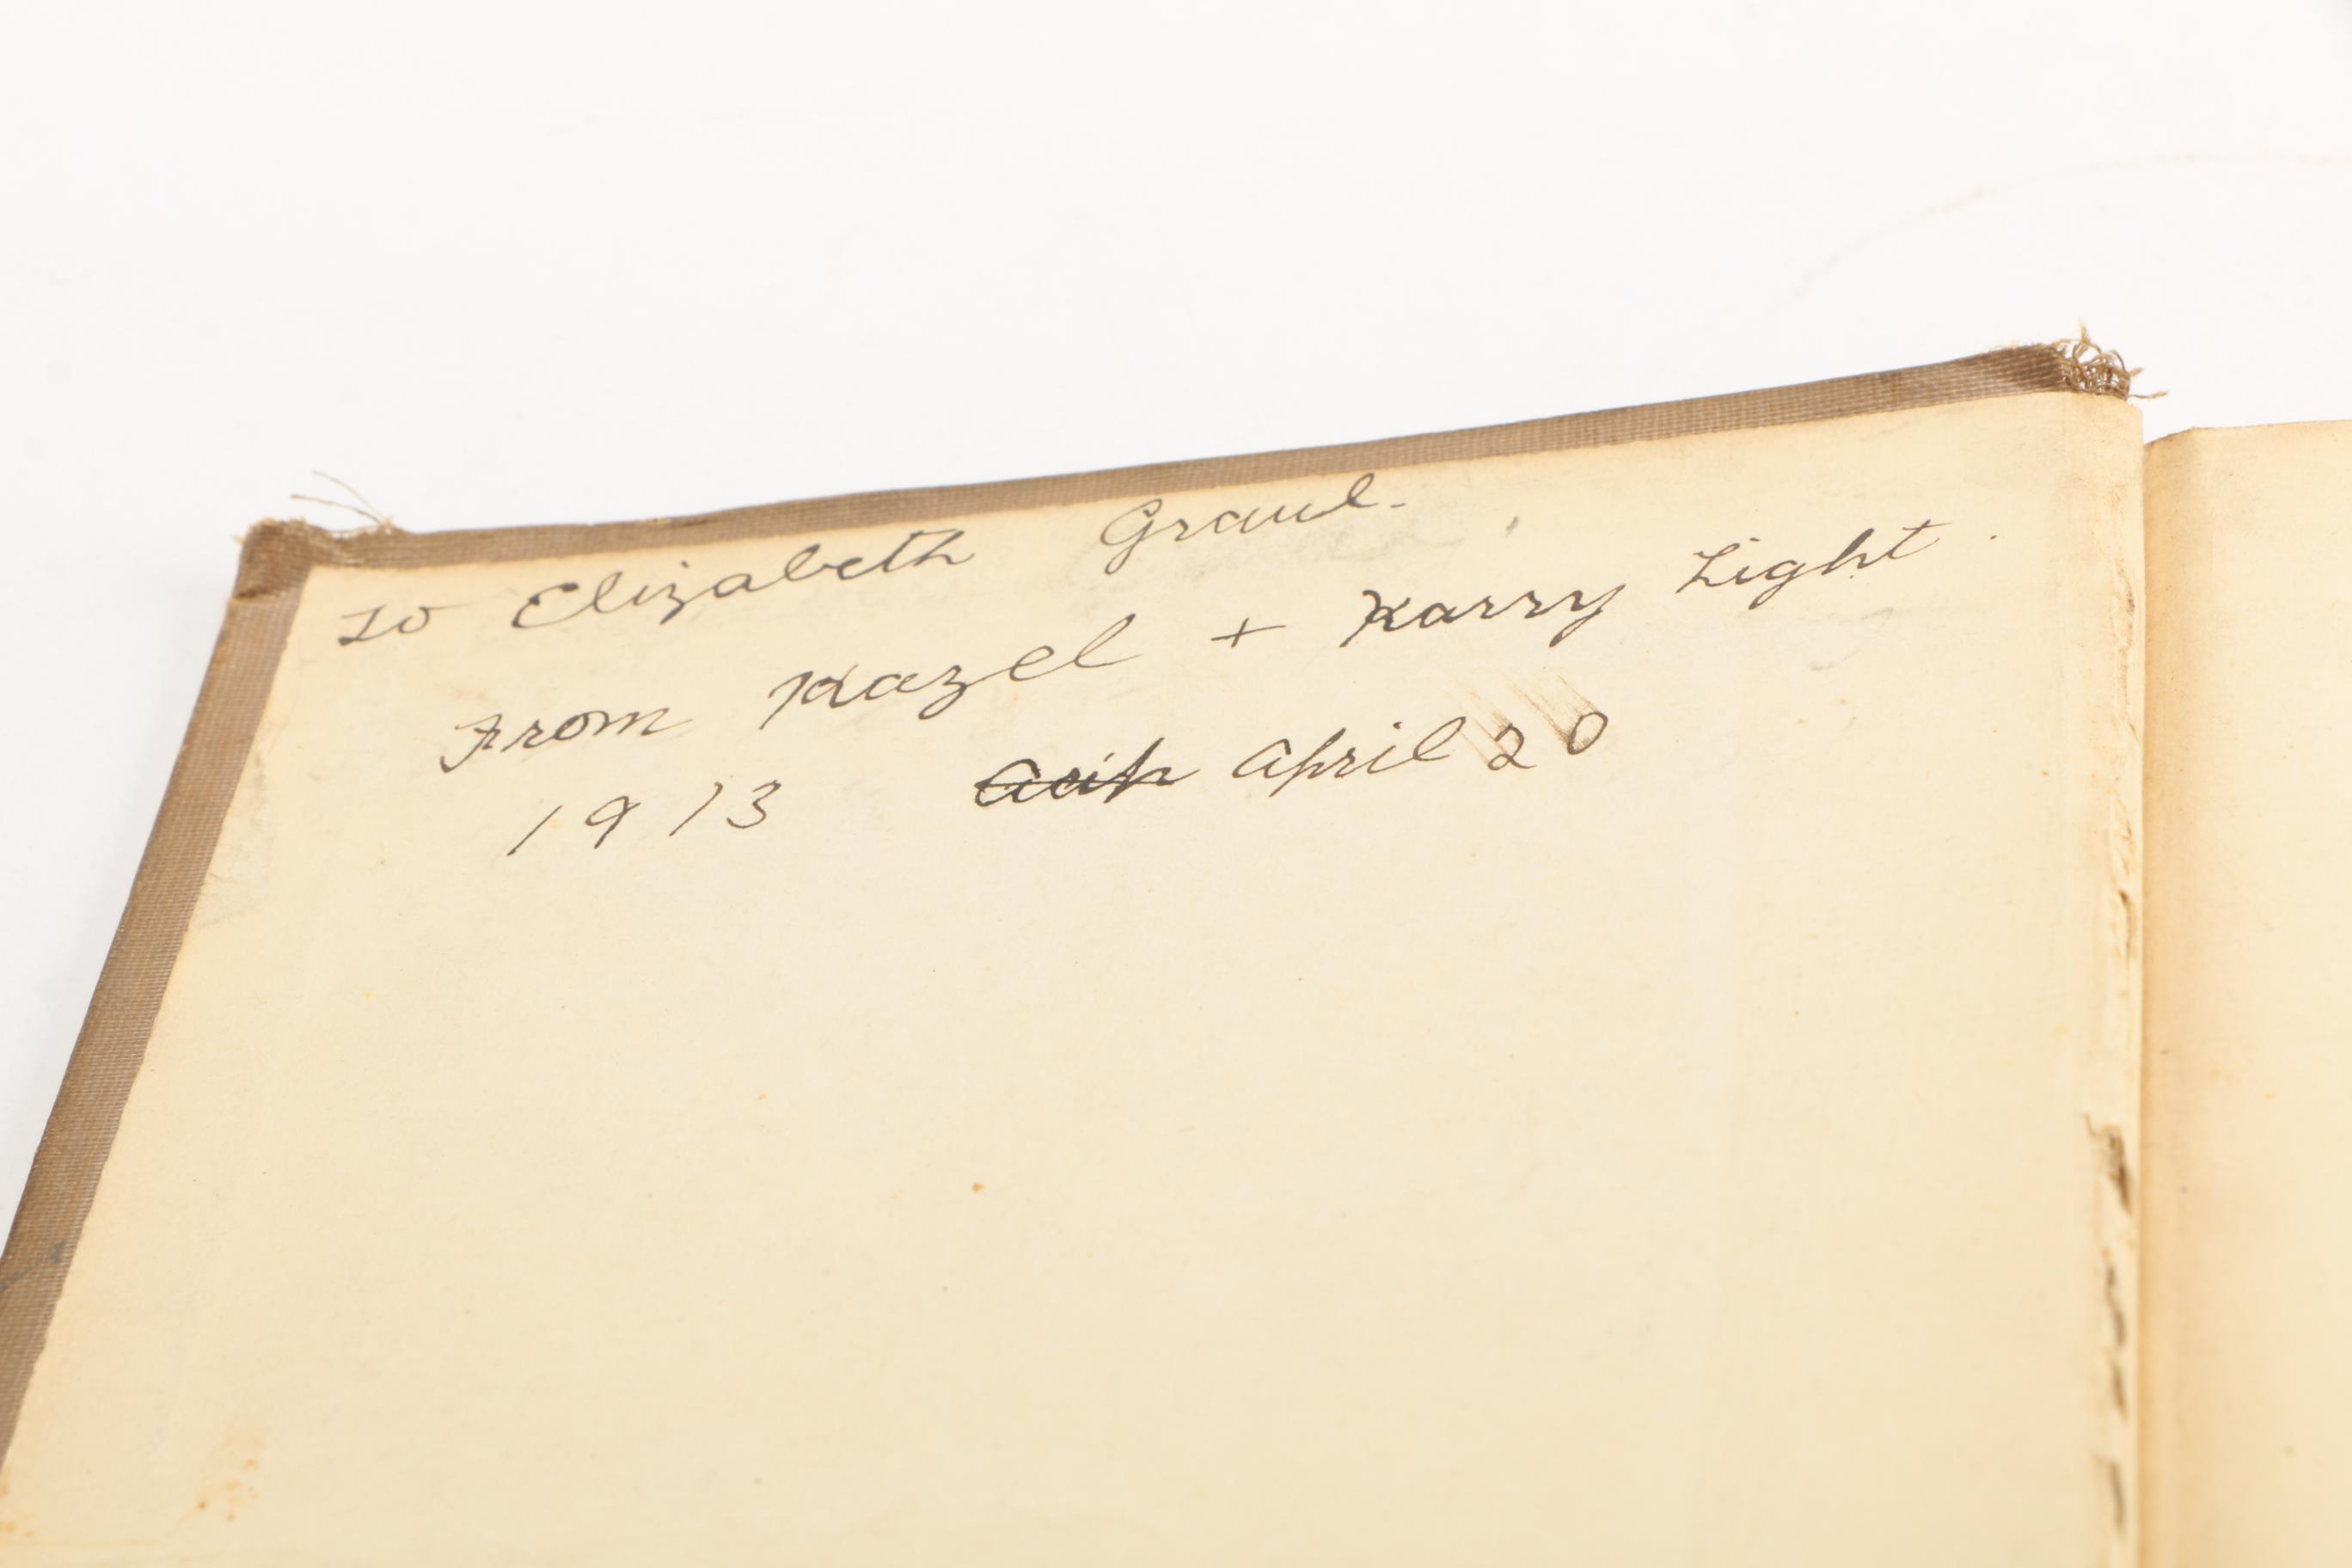 To Elizabeth Graul.
From Hazel + Harry Light.
1913 April 20